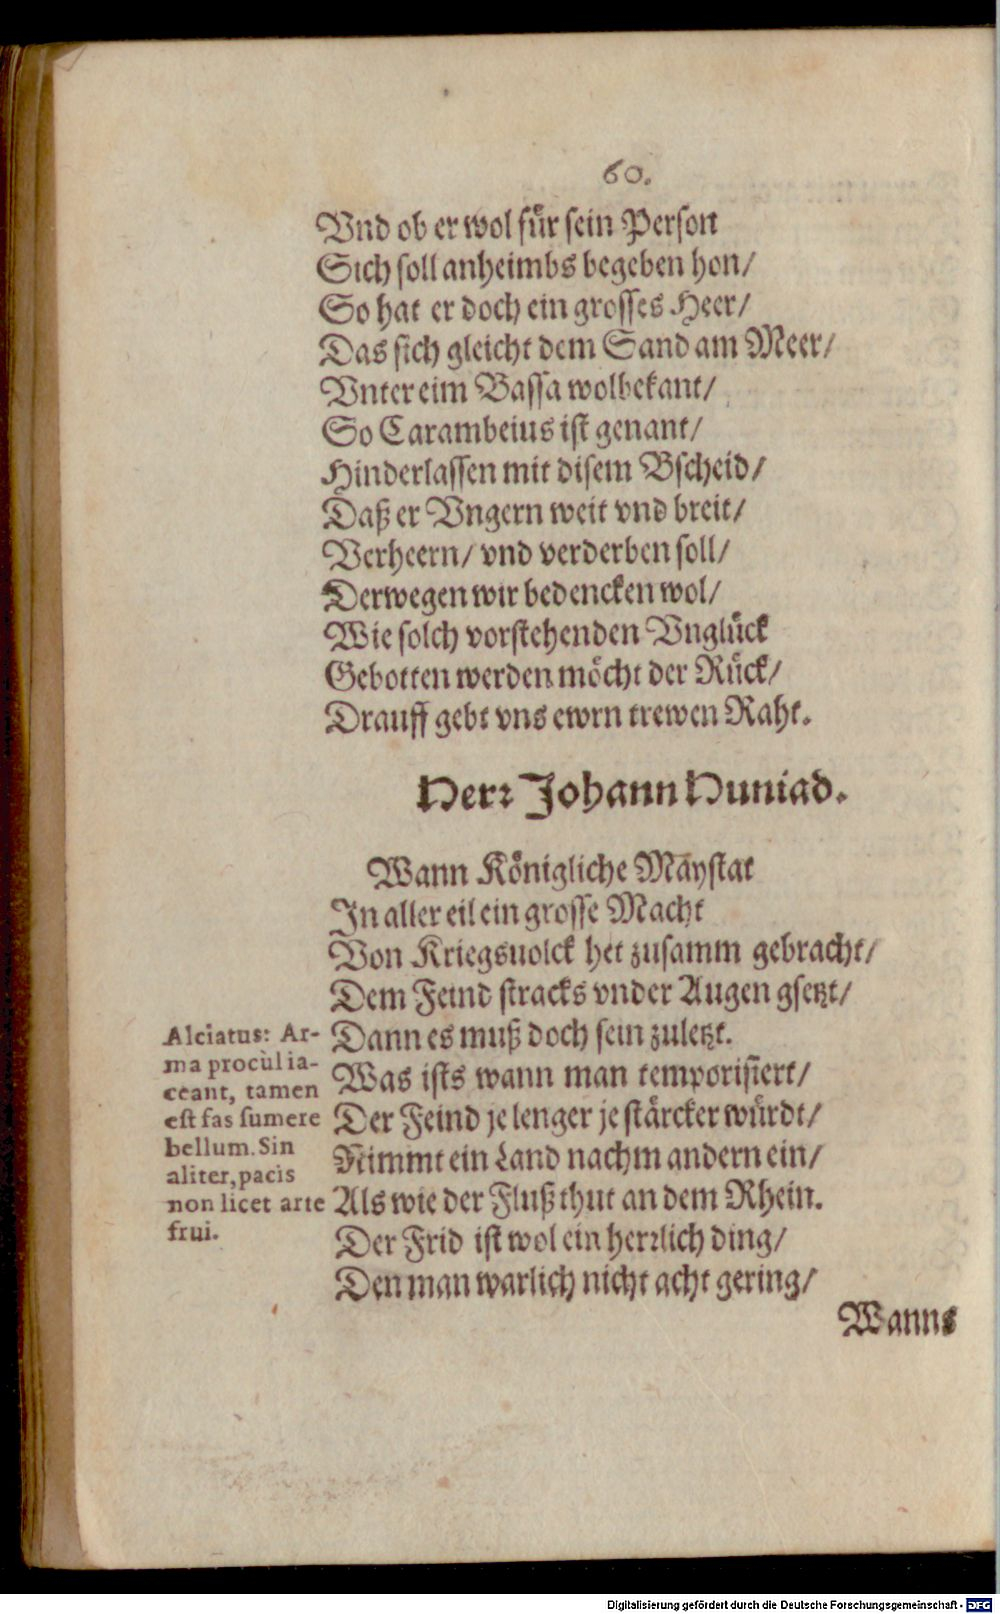 60.
Vnd ob er wol für sein Person
Sich soll anheimbs begeben hon/
So hat er doch ein grosses Heer/
Das sich gleicht dem Sand am Meer/
Vnter eim Bassa wolbekant/
So Carambeius ist genant/
Hinderlassen mit disem Bscheid/
Daß er Vngern weit vnd breit/
Verheern/ vnd verderben soll/
Derwegen wir bedencken wol/
Wie solch vorstehenden Vnglück
Gebotten werden möcht der Rück/
Drauff gebt vns ewrn trewen Raht.
Herr Johann Huniad.
Wann Königliche Mäystat
In aller eil ein grosse Macht
Von Kriegsuolck het zusamm gebracht/
Dem Feind stracks vnder Augen gsetzt/
Dann es muß doch sein zuletzt.
Was ists wann man temporisiert/
Der Feind je lenger je stärcker würdt/
Nimmt ein Land nachm andern ein/
Als wie der Fluß thut an dem Rhein.
Der Frid ist wol ein herrlich ding/
Den man warlich nicht acht gering/
Alciatus: Ar-
ma procùl ia-
ceant, tamen
est fas sumere
bellum. Sin
aliter, pacis
non licet arte
frui.
Wanns
Digitalisierung gefördert durch die Deutsche Forschungsgemeinschaft - DFG